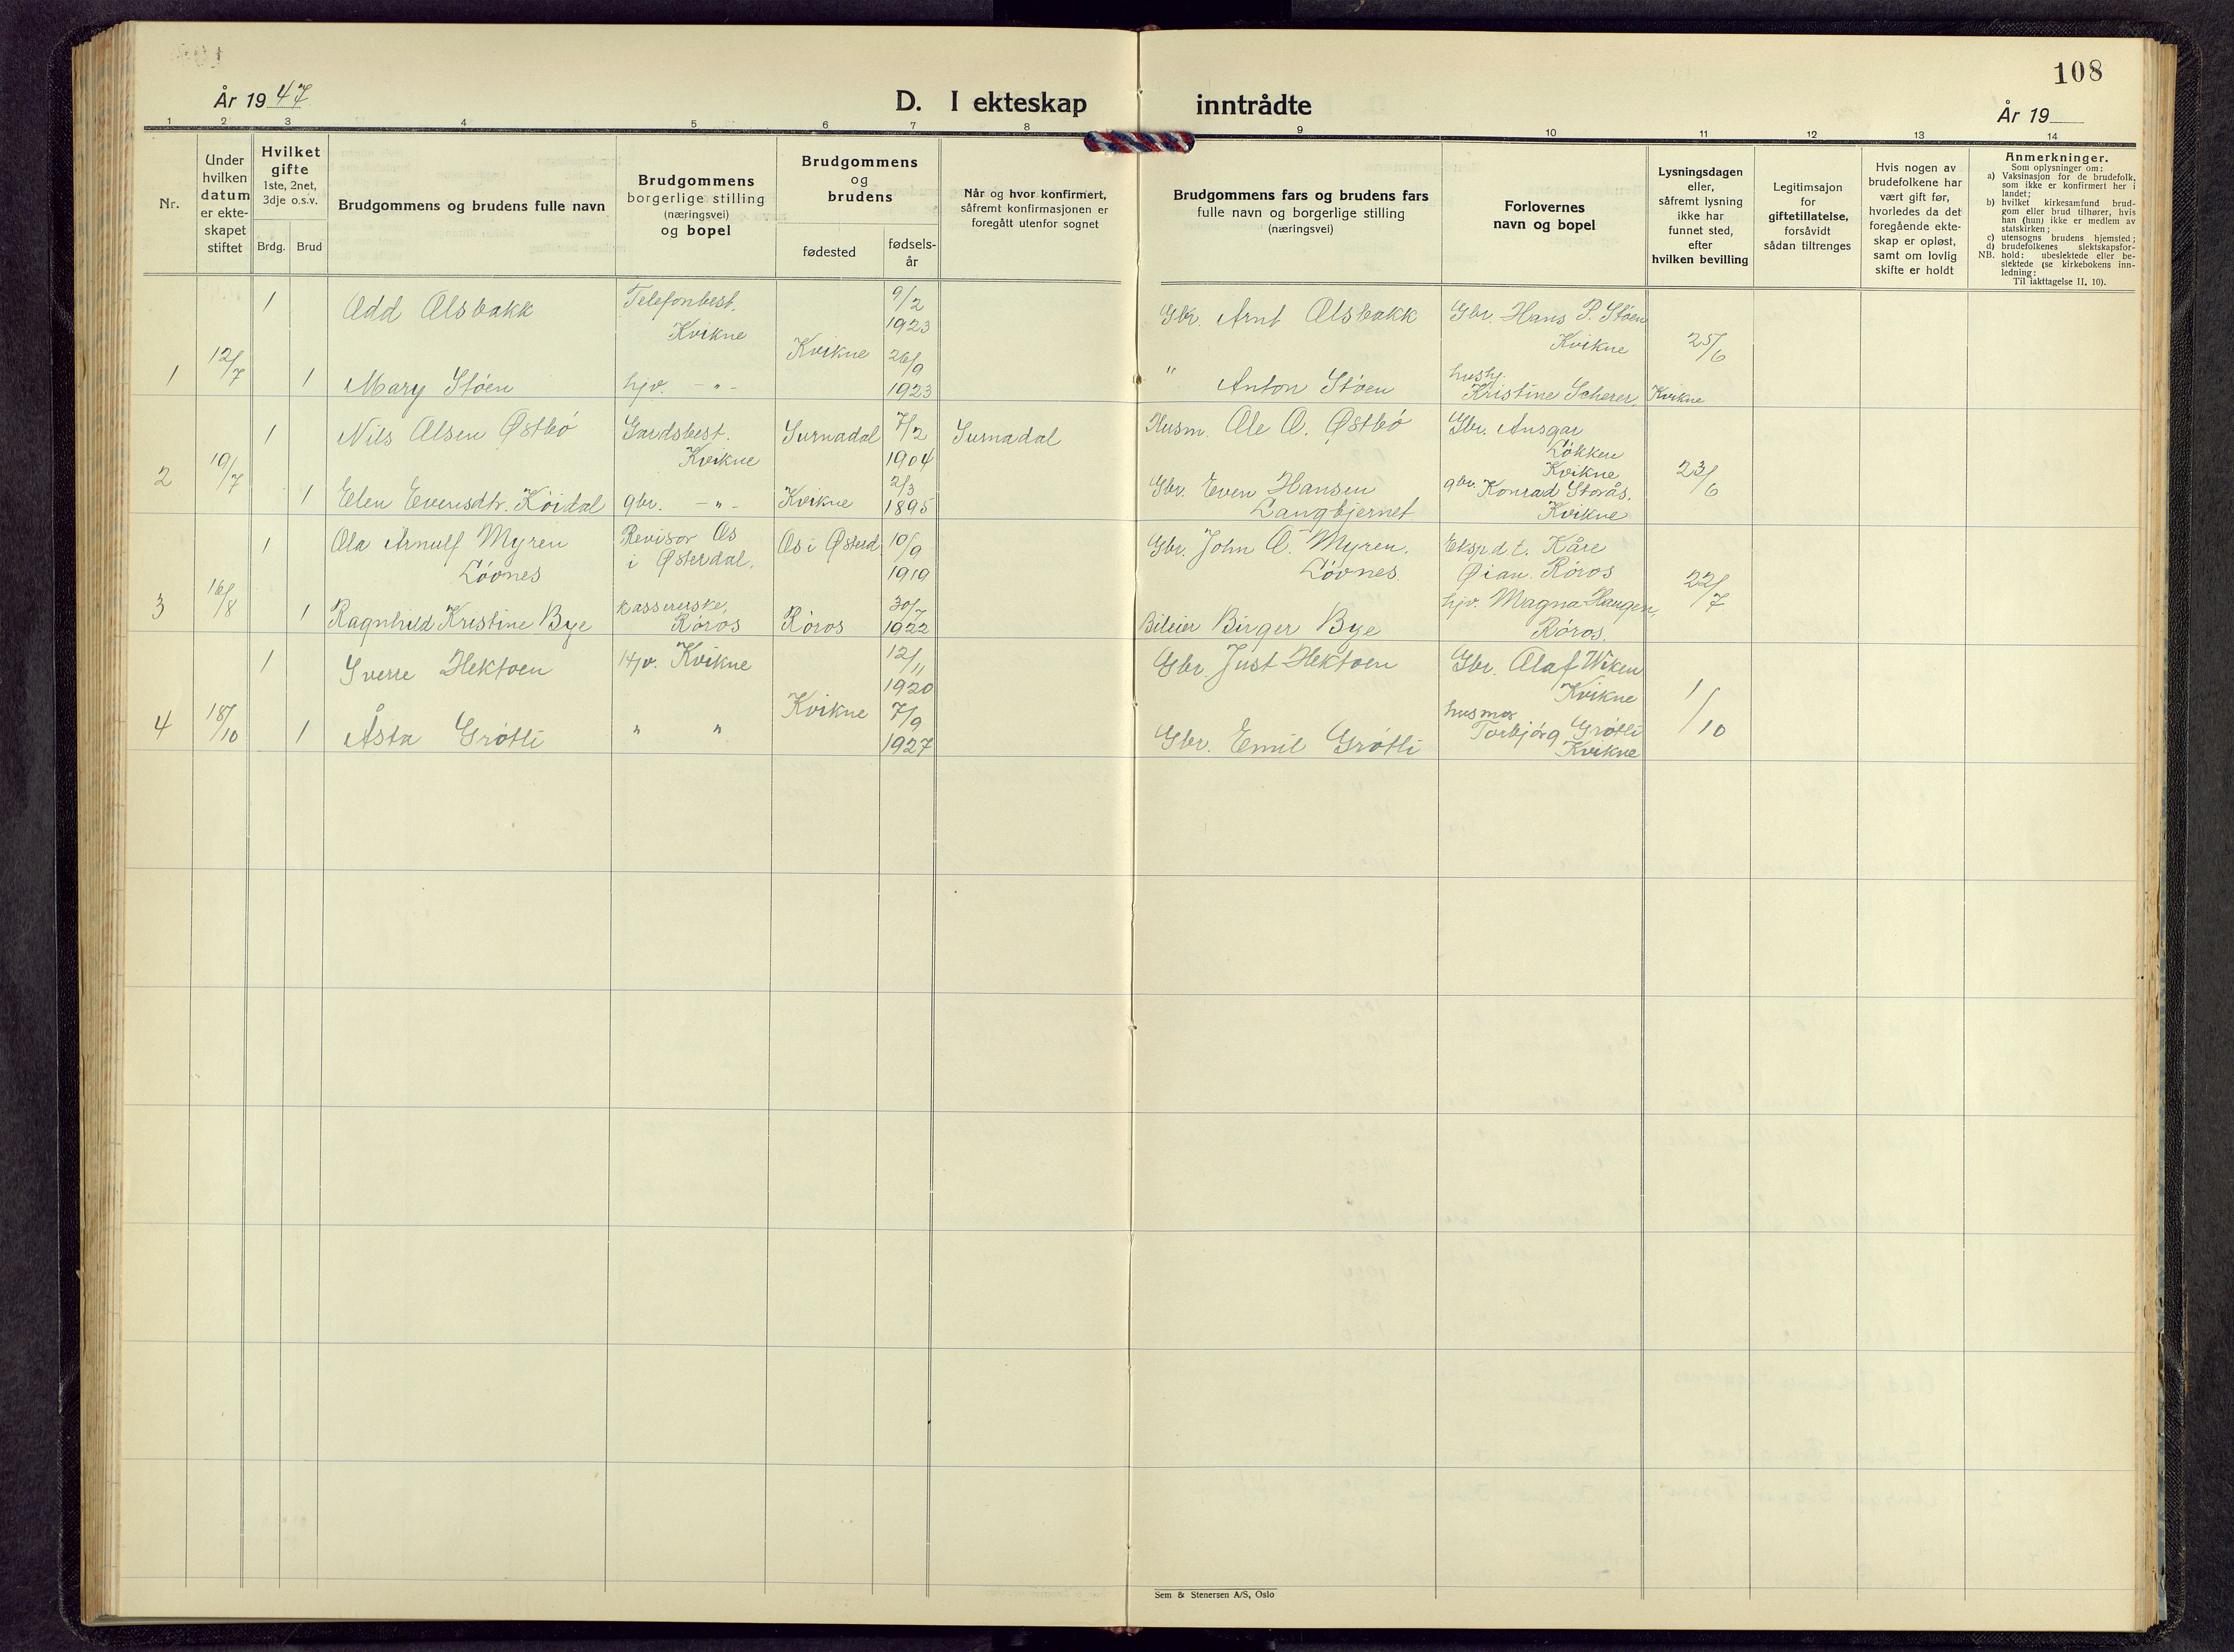 108
År 19 47
D. I ekteskap inntrådte
År 19
1 2 3 4 5 6 7 8 9 10 11 12 13 14
Nr.
Under
hvilken
datum
er ekte-
skapet
stiftet
Hvilket
gifte
1ste, 2net,
3dje o.s.v.
Brdg. Brud
Brudgommens og brudens fulle navn
Brudgommens
borgerlige stilling
(næringsvei)
og bopel
Brudgommens
og
brudens
fødested
fødsels-
år
Når og hvor konfirmert,
såfremt konfirmasjonen er
foregått utenfor sognet
Brudgommens fars og brudens fars
fulle navn og borgerlige stilling
(næringsvei)
Forlovernes
navn og bopel
Lysningsdagen
eller,
såfremt lysning
ikke har
funnet sted,
efter
hvilken bevilling
Legitimsajon
for
giftetillatelse,
forsåvidt
sådan tiltrenges
Hvis nogen av
brudefolkene har
vært gift før,
hvorledes da det
foregående ekte-
skap er opløst,
samt om lovlig
skifte er holdt
Anmerkninger.
Som oplysninger om:
a) Vaksinasjon for de brudefolk,
som ikke er konfirmert her i
landet;
b) hvilket kirkesamfund brud-
gom eller brud tilhører, hvis
han (hun) ikke er medlem av
statskirken;
c) utensogns brudens hjemsted;
d) brudefolkenes slektskapsfor-
NB. hold: ubeslektede eller be-
slektede (se kirkebokens inn-
ledning:
Til iakttagelse II, 10).
1 12/7
1 Odd Olsbakk Telefonbest. 9/2 Gbr. Arnt Olsbakk Gbr. Hans P. Stöen
Kvikne 1923 Kvikne 25/6
Kvikne 26/9
1 Mary Stöen hjv. – " – 1923 " Anton Stöen hushj.
Kristine Scherer, Kvikne
2 19/7
1 Nils Olsen Østbö Gardsbest. Surnadal 7/2 Surnadal Husm. Ole O. Østbö Gbr. Ansgar
Kvikne 1904 Løkken
Kvikne 23/6
1 Elen Evensdtr. Köidal gbr. – " – Kvikne 2/3 1895 Gbr. Even Hansen gbr. Konrad Storås.
Langkjernet Kvikne
3 16/8
1 Ola Arnulf Myren Revisor Os Os i Østerd 10/9 Gbr. John O. Myren. Ekspdt. Kåre
Lövnes i Østerdal. 1919 Lövnes. Øian. Röros 22/7
1 Ragnhild Kristine Bye kassererske, Röros 30/7 Bileier Birger Bye hjv. Magna Haugen,
Röros 1922 Röros.
4 18/10
1 Sverre Hektoen Hjv. Kvikne 12/11 Gbr. Just Hektoen Gbr. Olaf Wiken
1920 Kvikne 1/10
Kvikne 7/9 husmor
1 Åsta Grötli " " 1927 Gbr. Emil Grötli Torbjörg Grötli
Kvikne
Sem & Stenersen A/S, Oslo